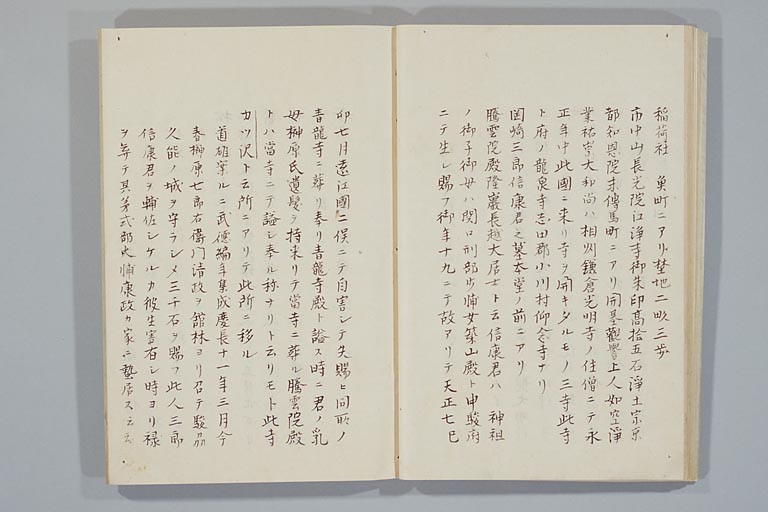 稲荷社　魚町ニアリ埜地二畝三歩
市中山長光院江浄寺御朱印髙拾五石浄土宗京
都知恩院末傳馬町ニアリ開基觀譽上人如空淨
業祐崇大和尚ハ相州鎌倉光明寺ノ住僧ニテ永
正年中此國ニ来リ寺ヲ開キタルモノ三寺此寺
ト府ノ龍泉寺志田郡小川村仰念寺ナリ
岡崎三郎信康君之墓本堂ノ前ニアリ
騰雲院殿隆巖長越大居士ト云信康君ハ　神祖
ノ御子御母ハ関口刑部少輔女築山殿ト申駿府
ニテ生レ賜フ御年十九ニテ故アリテ天正七巳
卯七月遠江國二俣ニテ自害シテ失賜ヒ同所ノ
青龍寺ニ葬リ奉リ青龍寺殿ト謚ス時ニ君ノ乳
母榊原氏遺髪ヲ持来リテ當寺ニ葬ル騰雲院殿
トハ當寺ニテ謚シ奉ル称ナリト云リモト此寺
カツ沢ト云所ニアリテ此所ニ移ル
道雄案ルニ武德編年集成慶長十一年三月今
春榊原七郎右衛門清政ヲ舘林ヨリ召テ駿刕
久能ノ城ヲ守ラシメ三千石ヲ賜フ此人三郎
信康君ヲ輔佐シケルカ彼生害有シ時ヨリ禄
ヲ辞テ其弟式部大輔康政カ家ニ蟄居ス云云